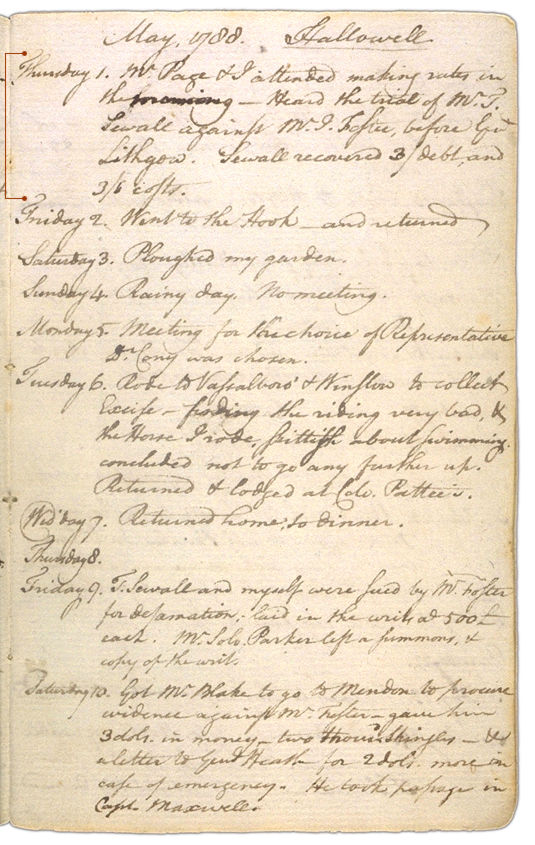 May, 1788. Hallowell
Thursday 1. Mr. Page & I attended making rates in
the forenoon – Heard the trial of Mr. T.
Sewall against Mr. I. Foster, before
Lithgow. Sewall recovered 3/ debt, and
costs.
Friday 2. Went to the Hook – and returned
Saturday 3. Ploughed my garden.
Sunday 4. Rainy day. No meeting.
Monday 5. Meeting for the choice of Representative
Dr. Cony was chosen.
Tuesday 6. Rode to Vassalboro' & Winslow to collect
Excise – finding the riding very bad, &
the Horse I rode, skittish about swimming.
concluded not to go any further up.
Returned & lodged at Colo. Pattee's.
Wed'day 7. Returned home, to dinner.
Thursday 8.
Friday 9. T. Sewall and myself were sued by Mr. Foster
for defamation; laid in the writs at 500£
each. Mr. Solo. Parker left a summons, &
copy of the writ.
Saturday 10. Got Mr. Blake to go to Mendon to procure
evidence against Mr. Foster – gave him
3 dols. in money – two thous'd Shingles – &
a letter to Genl Heath for 2 dols. more in
case of emergency. He took passage in
Capt. Maxwell.